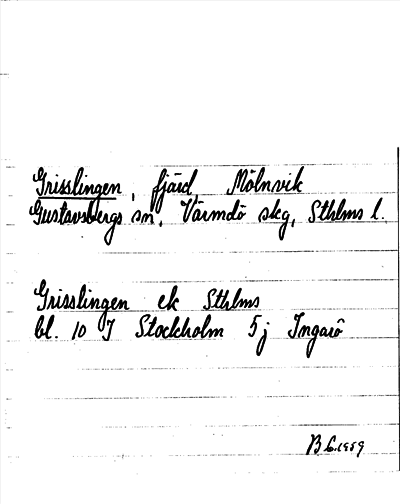 Grisslingen, fjärd, Mölnvik
Gustavsbergs sn, Värmdö skg, Sthlms l.
Grisslingen ek Sthlms
bl. 10 J Stockholm 5j Ingarö
1959